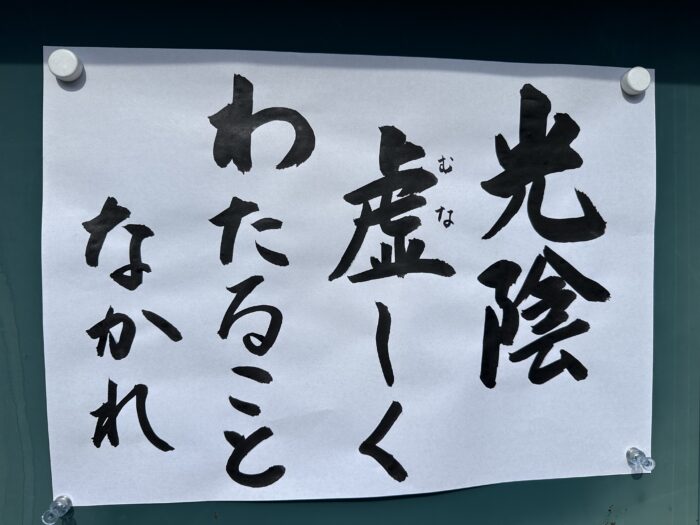 光陰
虚しく
むな
わたること
なかれ